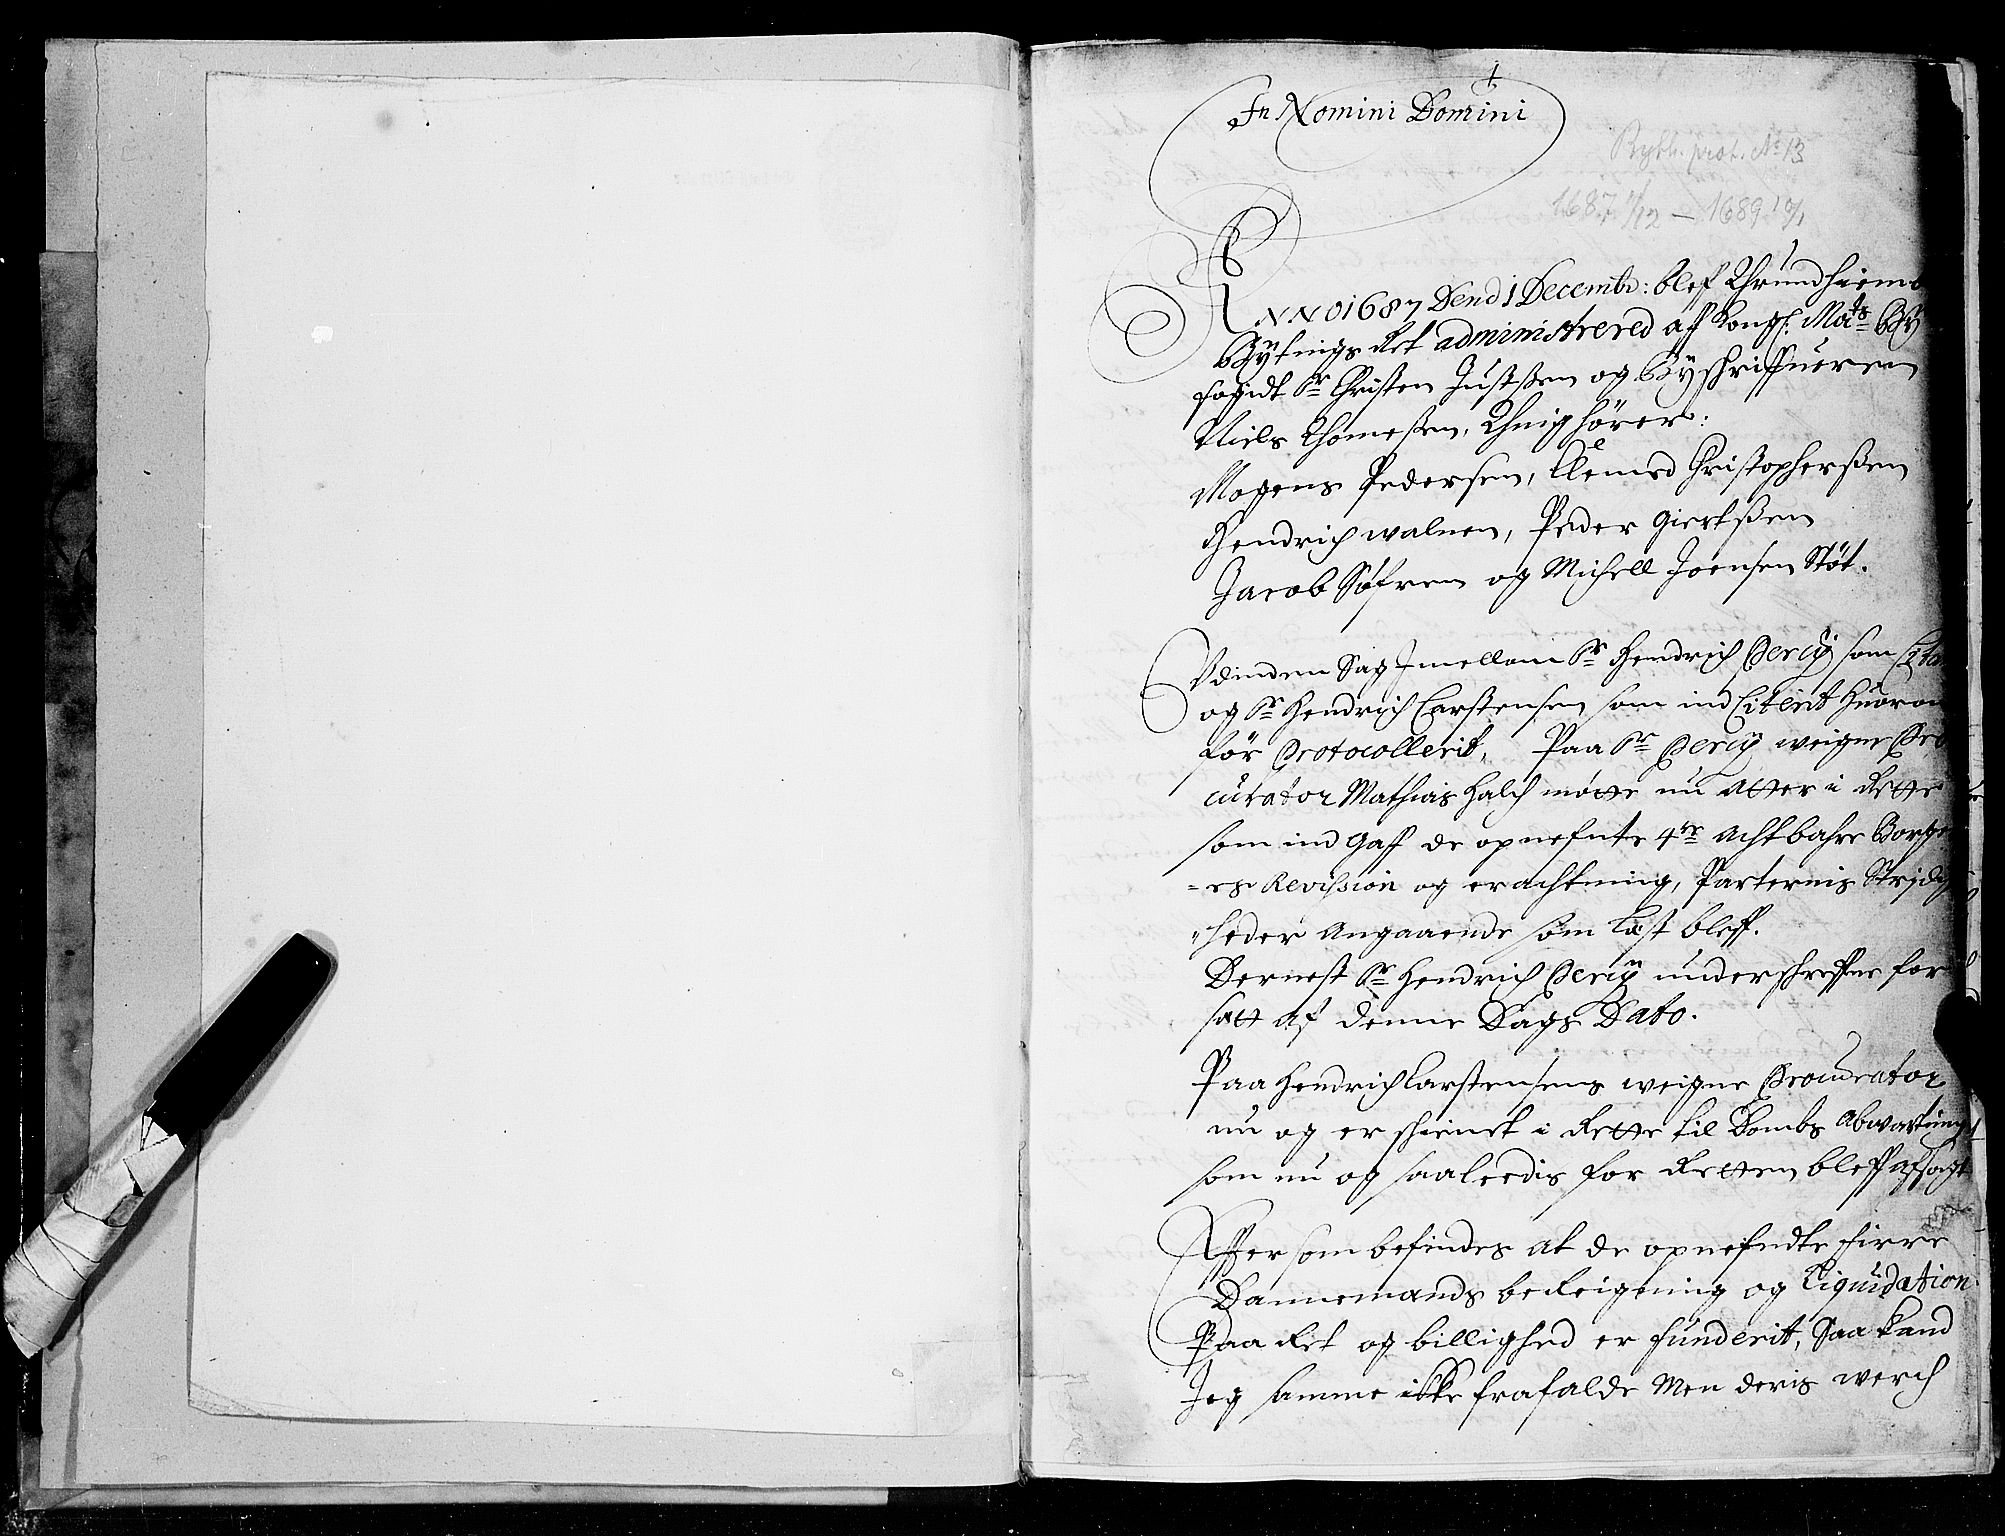 1
In Nomini Domini
Bytb. prot. No 13
1687 1/12 – 1689 10/1
ANNO 1687 Dend 1 Decembr: blef Thrundhiembs
Bytings Ret administrered aff Kongl: Mats By
fogidt Sr Christen Justsen og Byschriffueren
Niels Thomesen, Thinghörer:
Mogens Pedersen, Clemed Christophersen
Hendrich walnen, Peder Giertsen
Jacob Söfren og Michell Joensen Stöt.
Udinden Sag Imellom Sr Hendrich Percy som
og Sr Hendrich Carstensen som ind Citerit
för Protocollerit, Paa Sr Percy weigne Pro
curator Mathias Halch mötte nu Atter i Rette
som ind Gaff de opnefnte 4re Achtbahre Borge
=rs Revission og erachtning, Parternis Stridig
"heder Angaaende som læst bleff.
Dernest Sr Hendrich Percy underschreffne for
satt Af denne Dags Dato.
Paa Hendrich Carstensens weigne Procurator
nu og er schienet i Rette til Dombs Abwartning
som nu og saaleedis for Retten bleff Afsagt
Effter som befindes At de opnefndte firre
Dannemænds bereigning og Liquidation
Paa Ret og billighed er funderit, Saa kand
Jeg samme icke frafalde Men deris werch